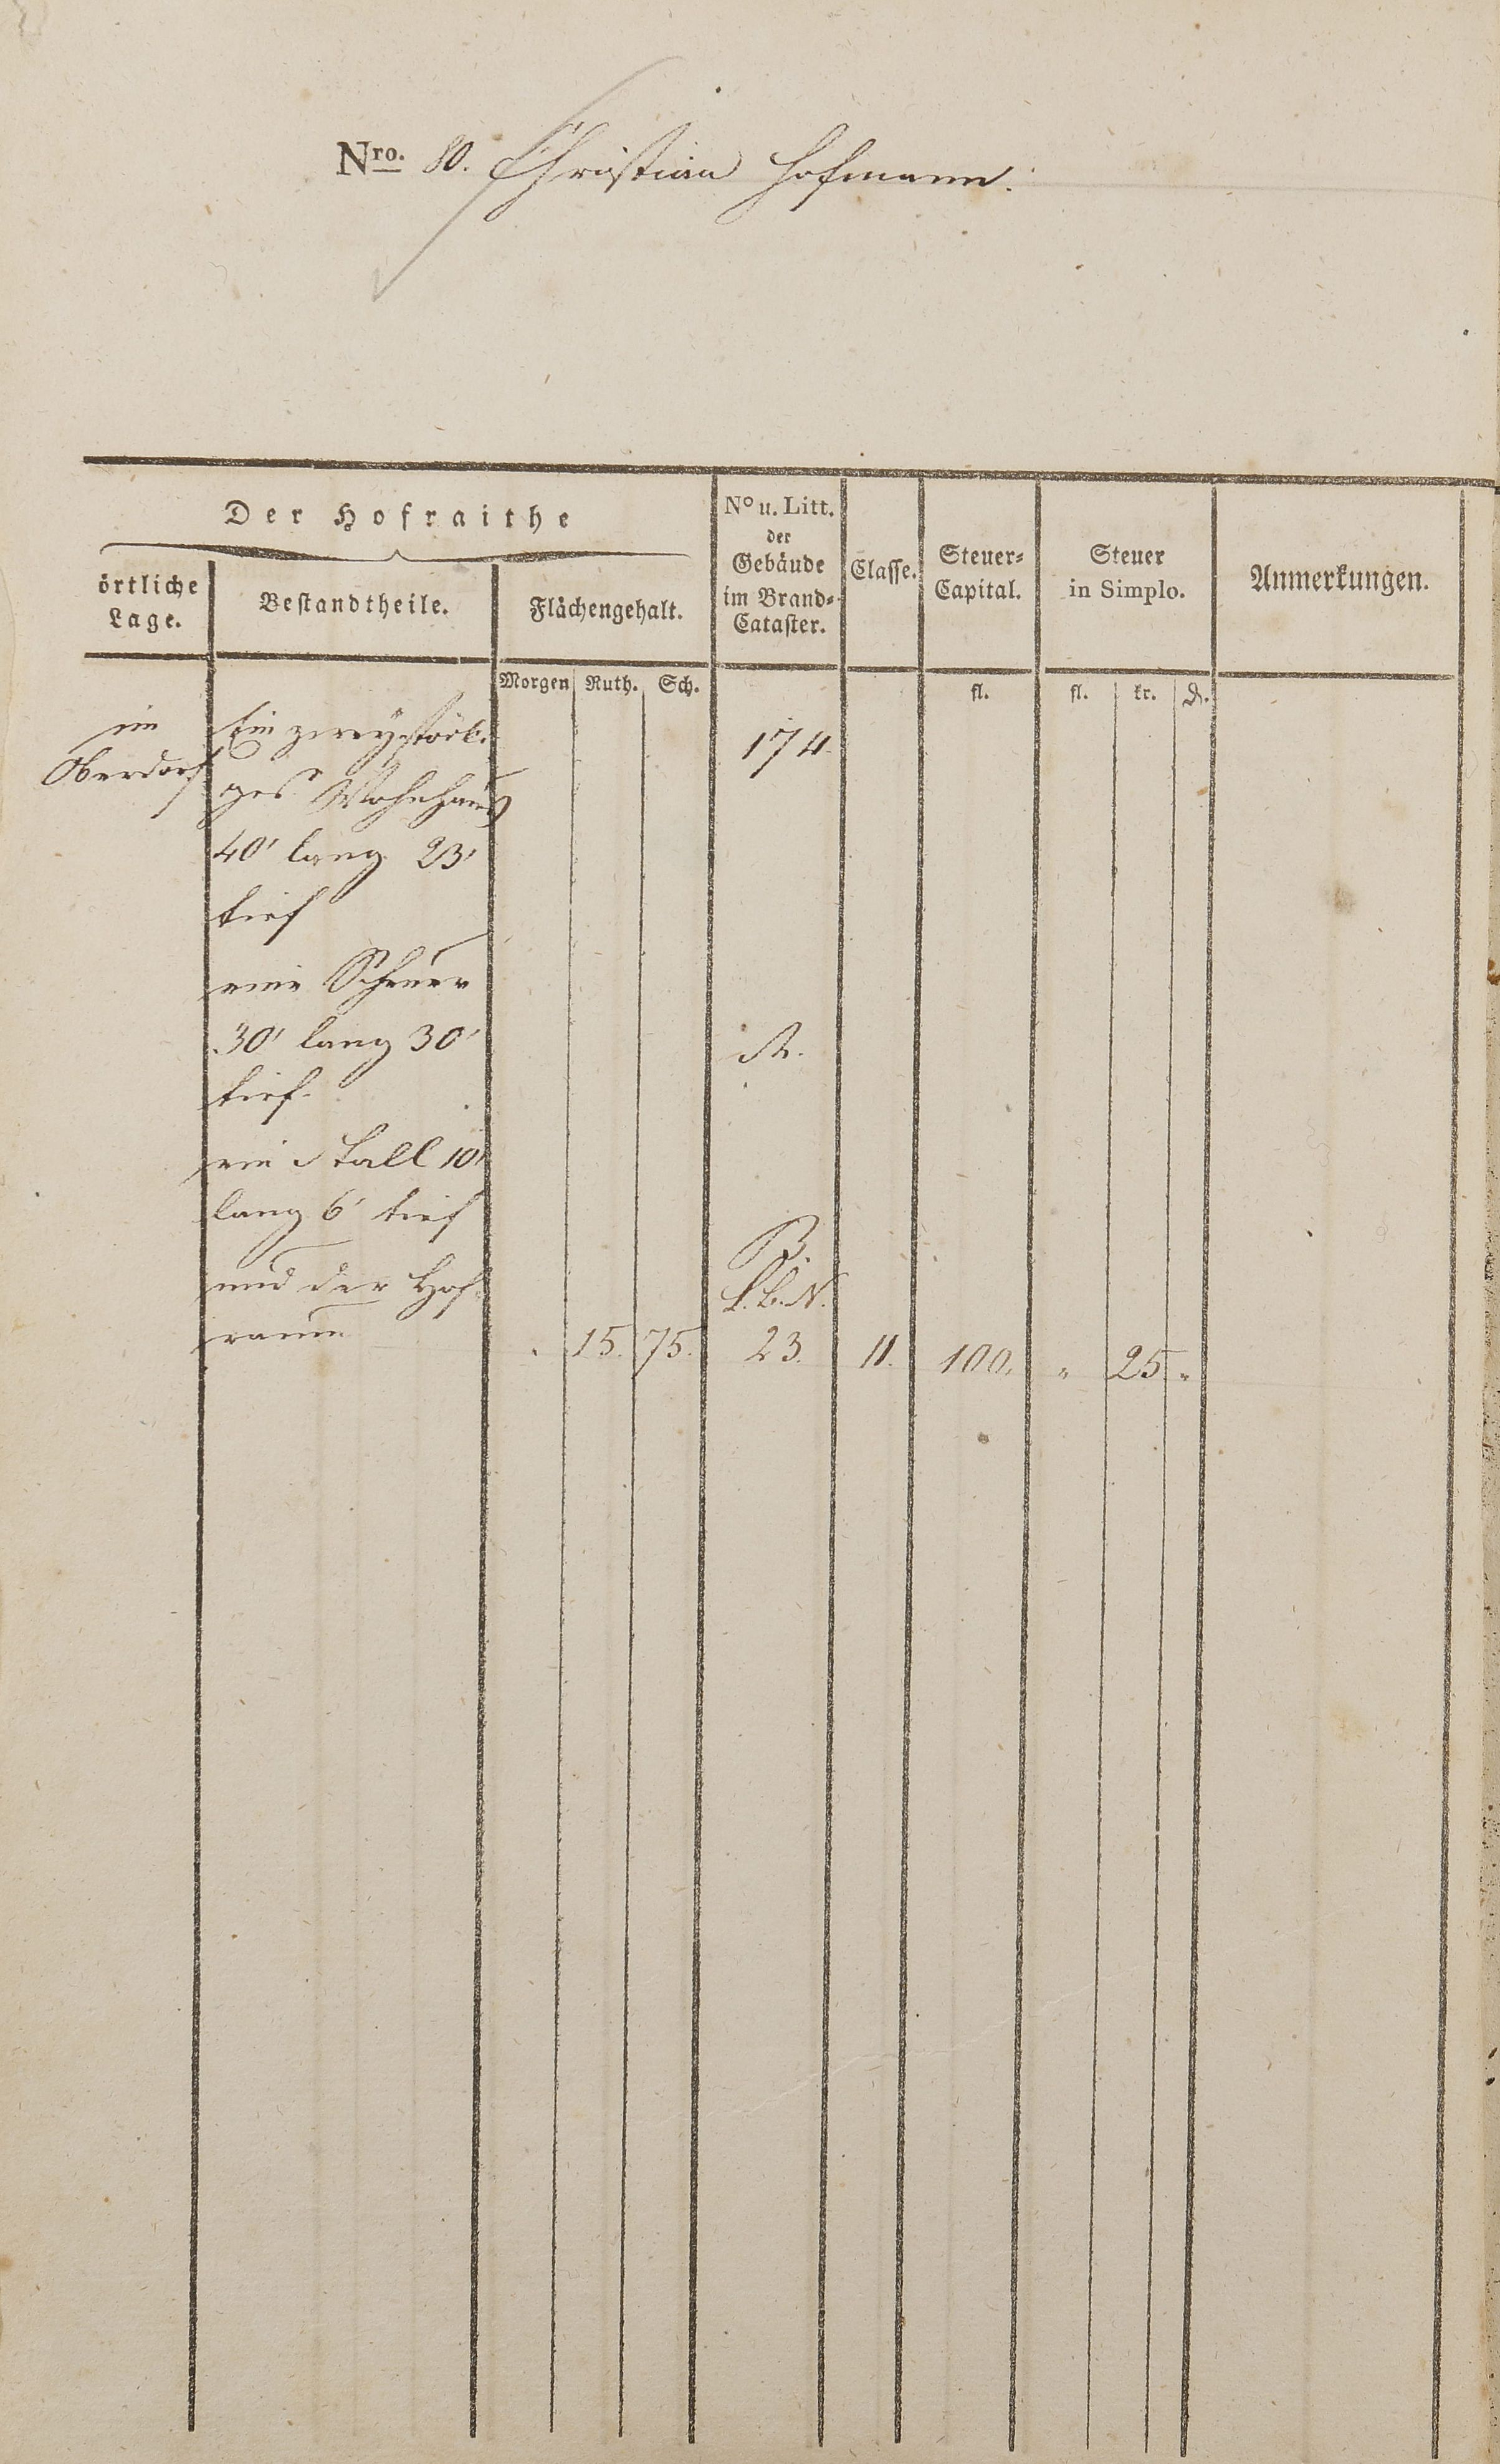 Nro. 80. Christian Hofmann.
Der Hofraithe
örtliche
Lage.
Bestandtheile.
Flächengehalt.
No u. Litt.
der
Gebäude
im Brand-
Cataster.
Classe.
Steuer-
Capital.
Steuer
in Simplo.
Anmerkungen.
Morgen Ruth. Sch.
fl.
fl. kr. d.
im
Oberdorf
Ein zweystöck.
ges Wohnhaus
174.
40' lang 23'
tief
eine Scheuer
30' lang 30'
A.
tief.
ein Stall 10'
lang 6' tief
B.
und der Hof-
L.b.N.
raum . 15. 75. 23. II. 100. " 25. "